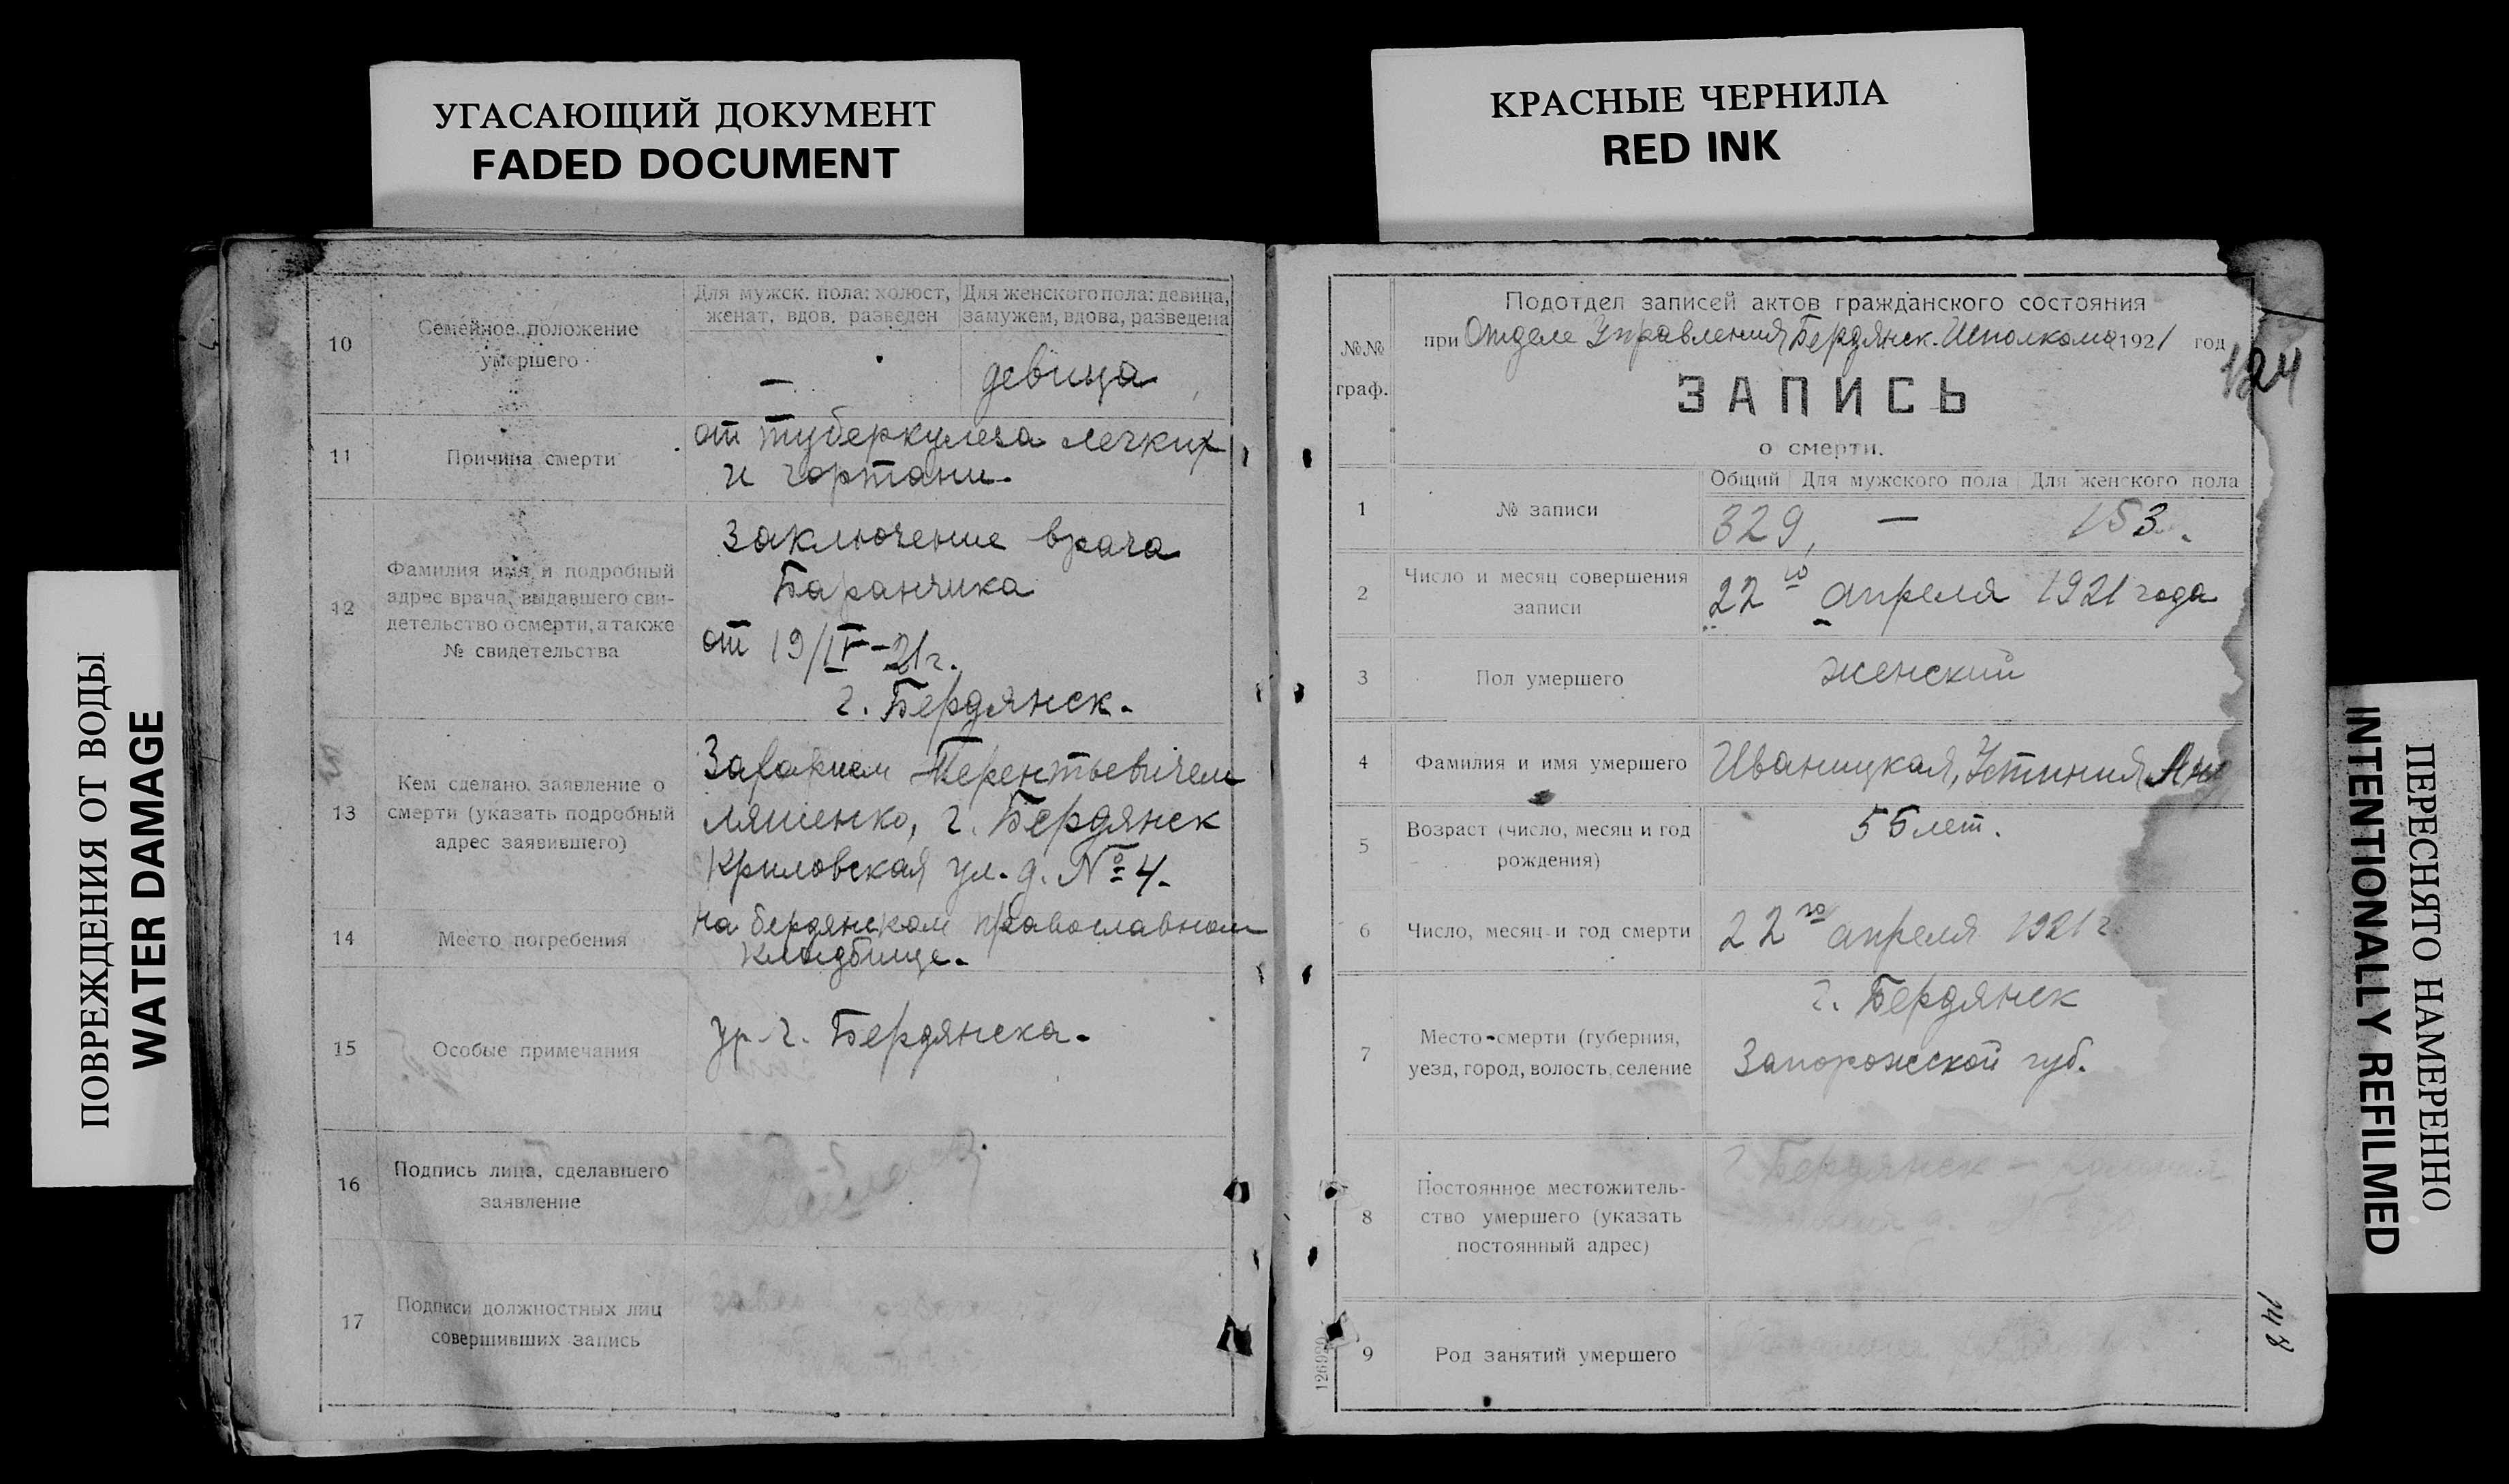 УГАСАЮЩИЙ ДОКУМЕНТ
FADED DOCUMENT
КРАСНЫЕ ЧЕРНИЛА
RED INK
ПОВРЕЖДЕНИЯ ОТ ВОДЫ
WATER DAMAGE
10
Семейное положение
умершего
Для мужск. пола: холост,
женат, вдов, разведен
Для женского пола: девица,
замужем, вдова, разведена
—
девица
11
Причина смерти
от туберкулеза легких
и гортани.
12
Фамилия имя и подробный
адрес врача, выдавшего сви-
детельство о смерти, а также
№ свидетельства
Заключение врача
Баранчика
от 19/IV-21г.
г. Бердянск.
13
Кем сделано заявление о
смерти (указать подробный
адрес заявившего)
Захарием Терентьевичем
Ляшенко, г. Бердянск
Криловская ул. д. № 4.
14
Место погребения
на бердянском православном
кладбище.
15
Особые примечания
ур. г. Бердянска.
16
Подпись лица, сделавшего
заявление
17
Подписи должностных лиц
совершивших запись
№№
граф.
Подотдел записей актов гражданского состояния
при Отделе Управления Бердянск. Исполкома 1921 год
124
ЗАПИСЬ
о смерти.
1
№ записи
Общий
Для мужского пола
Для женского пола
329,
—
153.
2
Число и месяц совершения
записи
22го апреля 1921 года
3
Пол умершего
женский
4
Фамилия и имя умершего
Иваницкая, Устиния Ан
5
Возраст (число, месяц и год
рождения)
55 лет.
6
Число, месяц и год смерти
22го апреля 1921 г.
7
Место смерти (губерния,
уезд, город, волость, селение
г. Бердянск
Запорожской губ.
8
Постоянное местожитель-
ство умершего (указать
постоянный адрес)
г. Бердянск —
9
Род занятий умершего
126920
148
ПЕРЕСНЯТО НАМЕРЕННО
INTENTIONALLY REFILMED